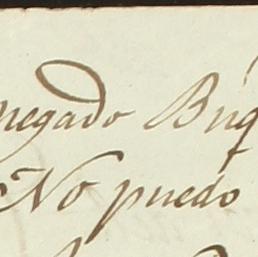 negado Buq
No puedo